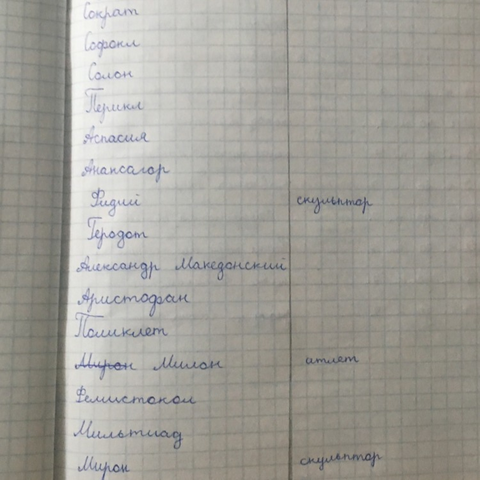 Сократ
Софокл
Солон
Перикл
Аспасия
Анаксагор
Фидий скульптор
Геродот
Александр Македонский
Аристофан
Поликлет
Мирон Милон атлет
Фемистокол
Мильтиад
Мирон скульптор